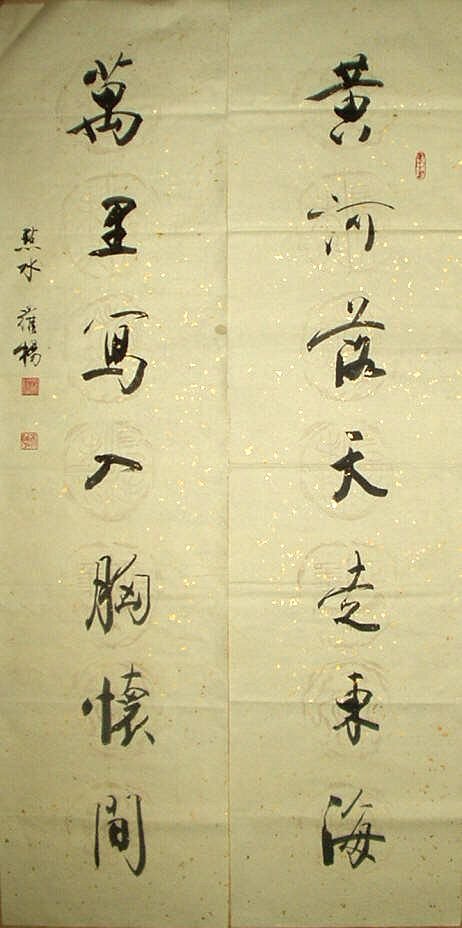 黄河落天走東海
萬里寫入胸懷間
水 楊